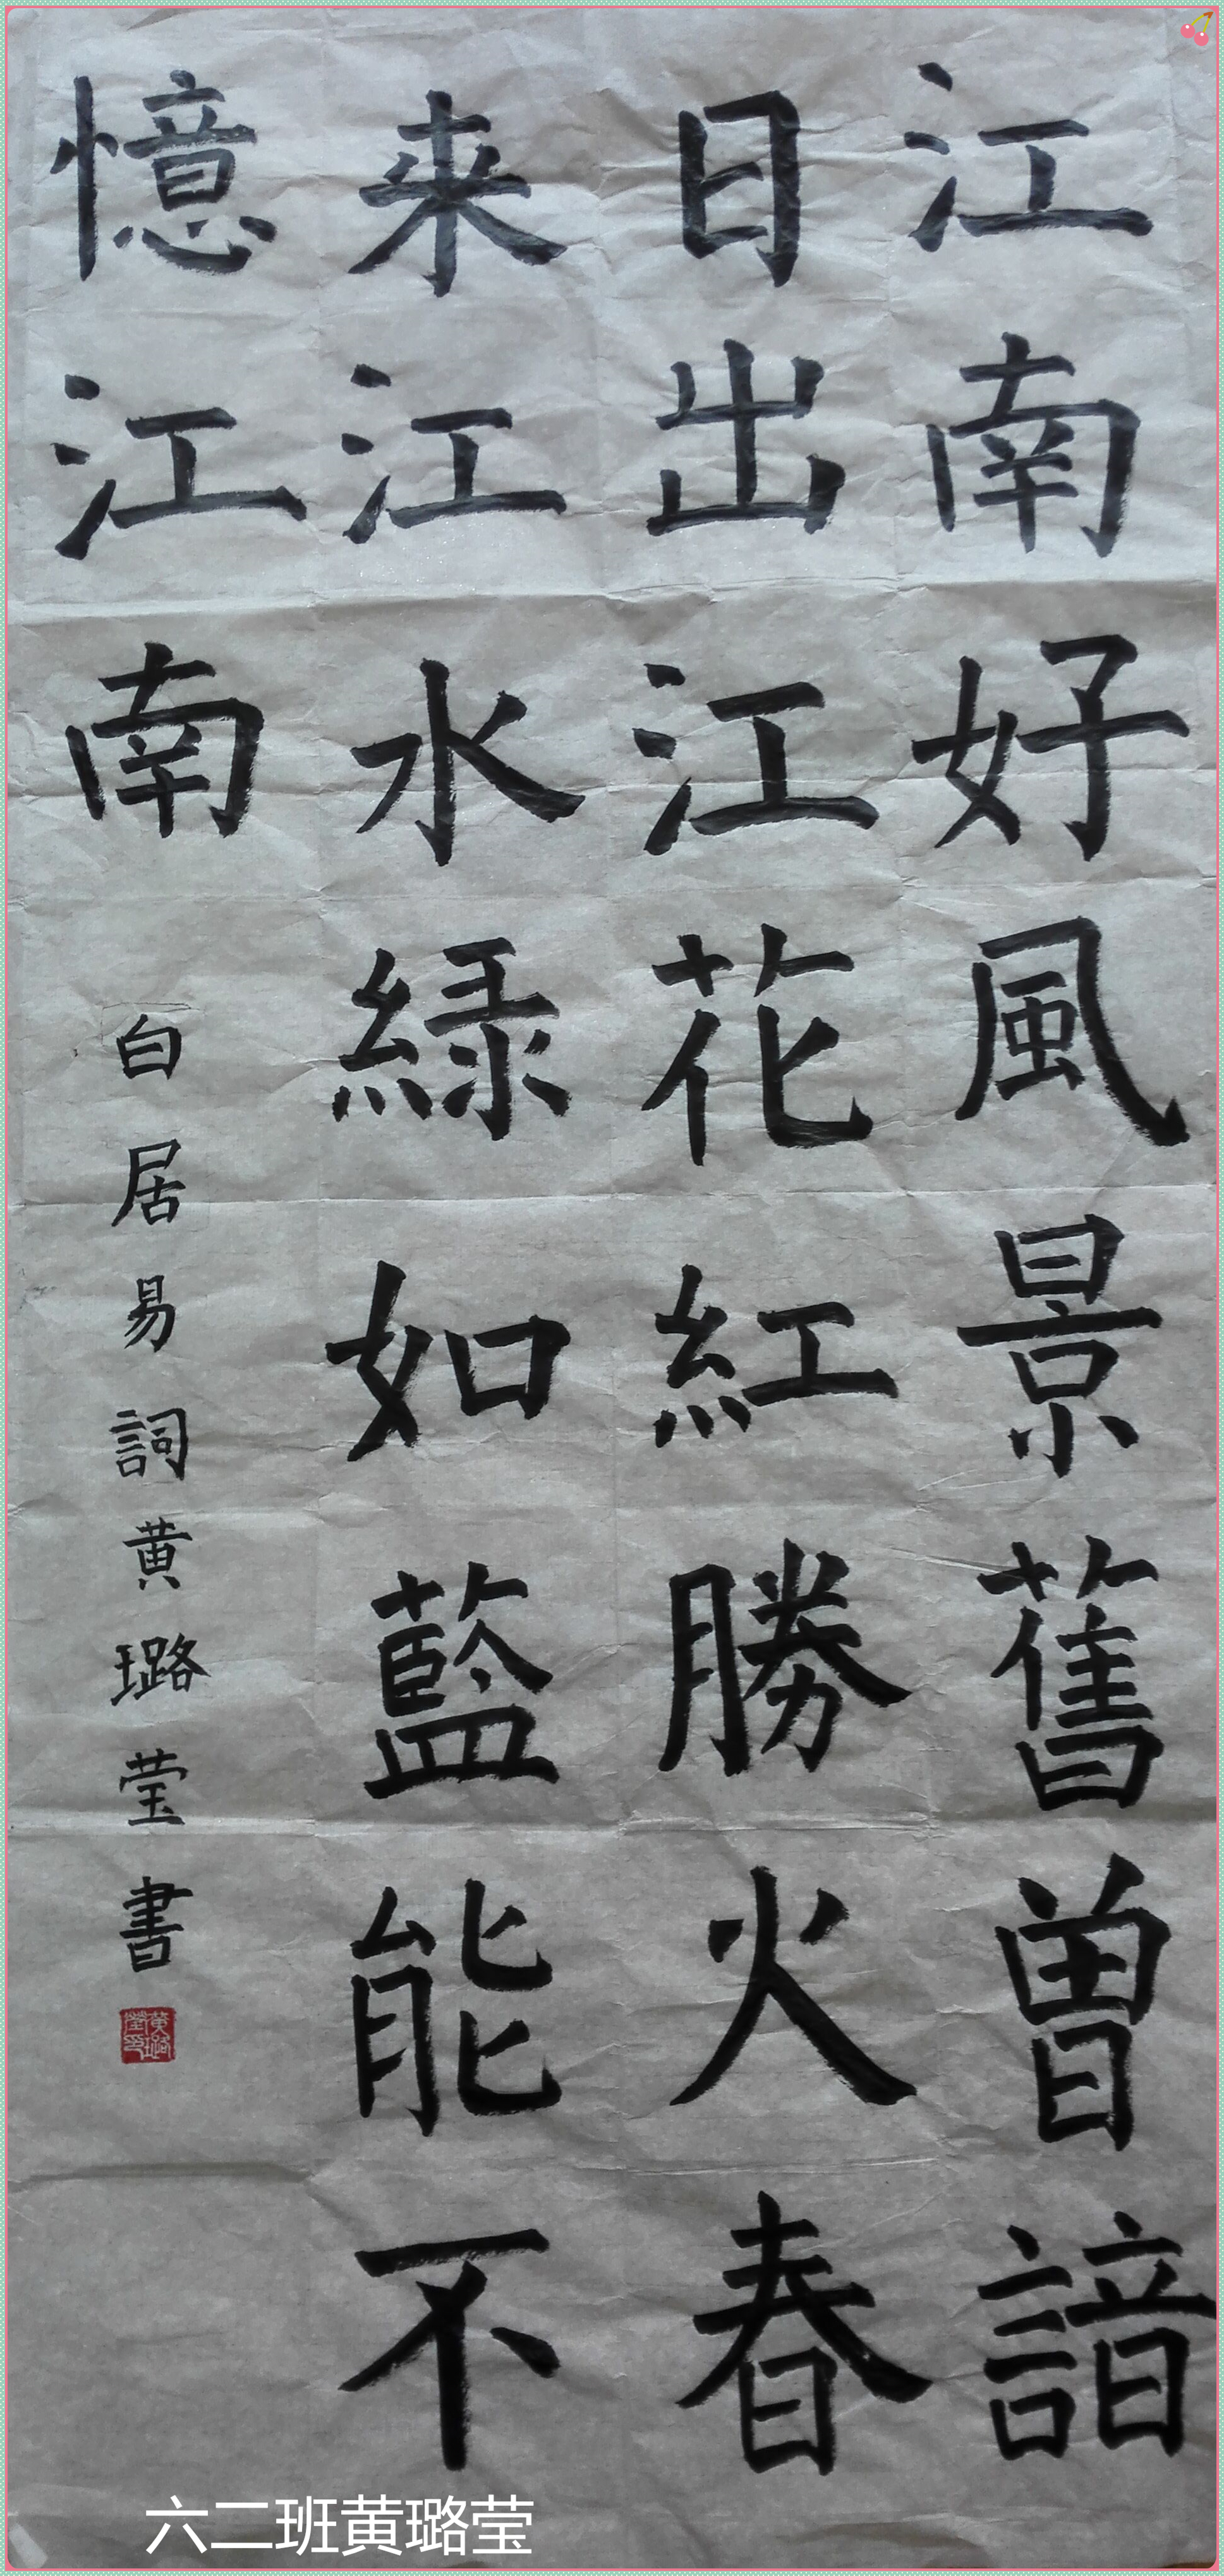 江南好風景舊曽諳
日出江花紅勝火春
来江水緑如藍能不
憶江南
白居易詞黄璐莹書
黄璐莹印
六二班黄璐莹